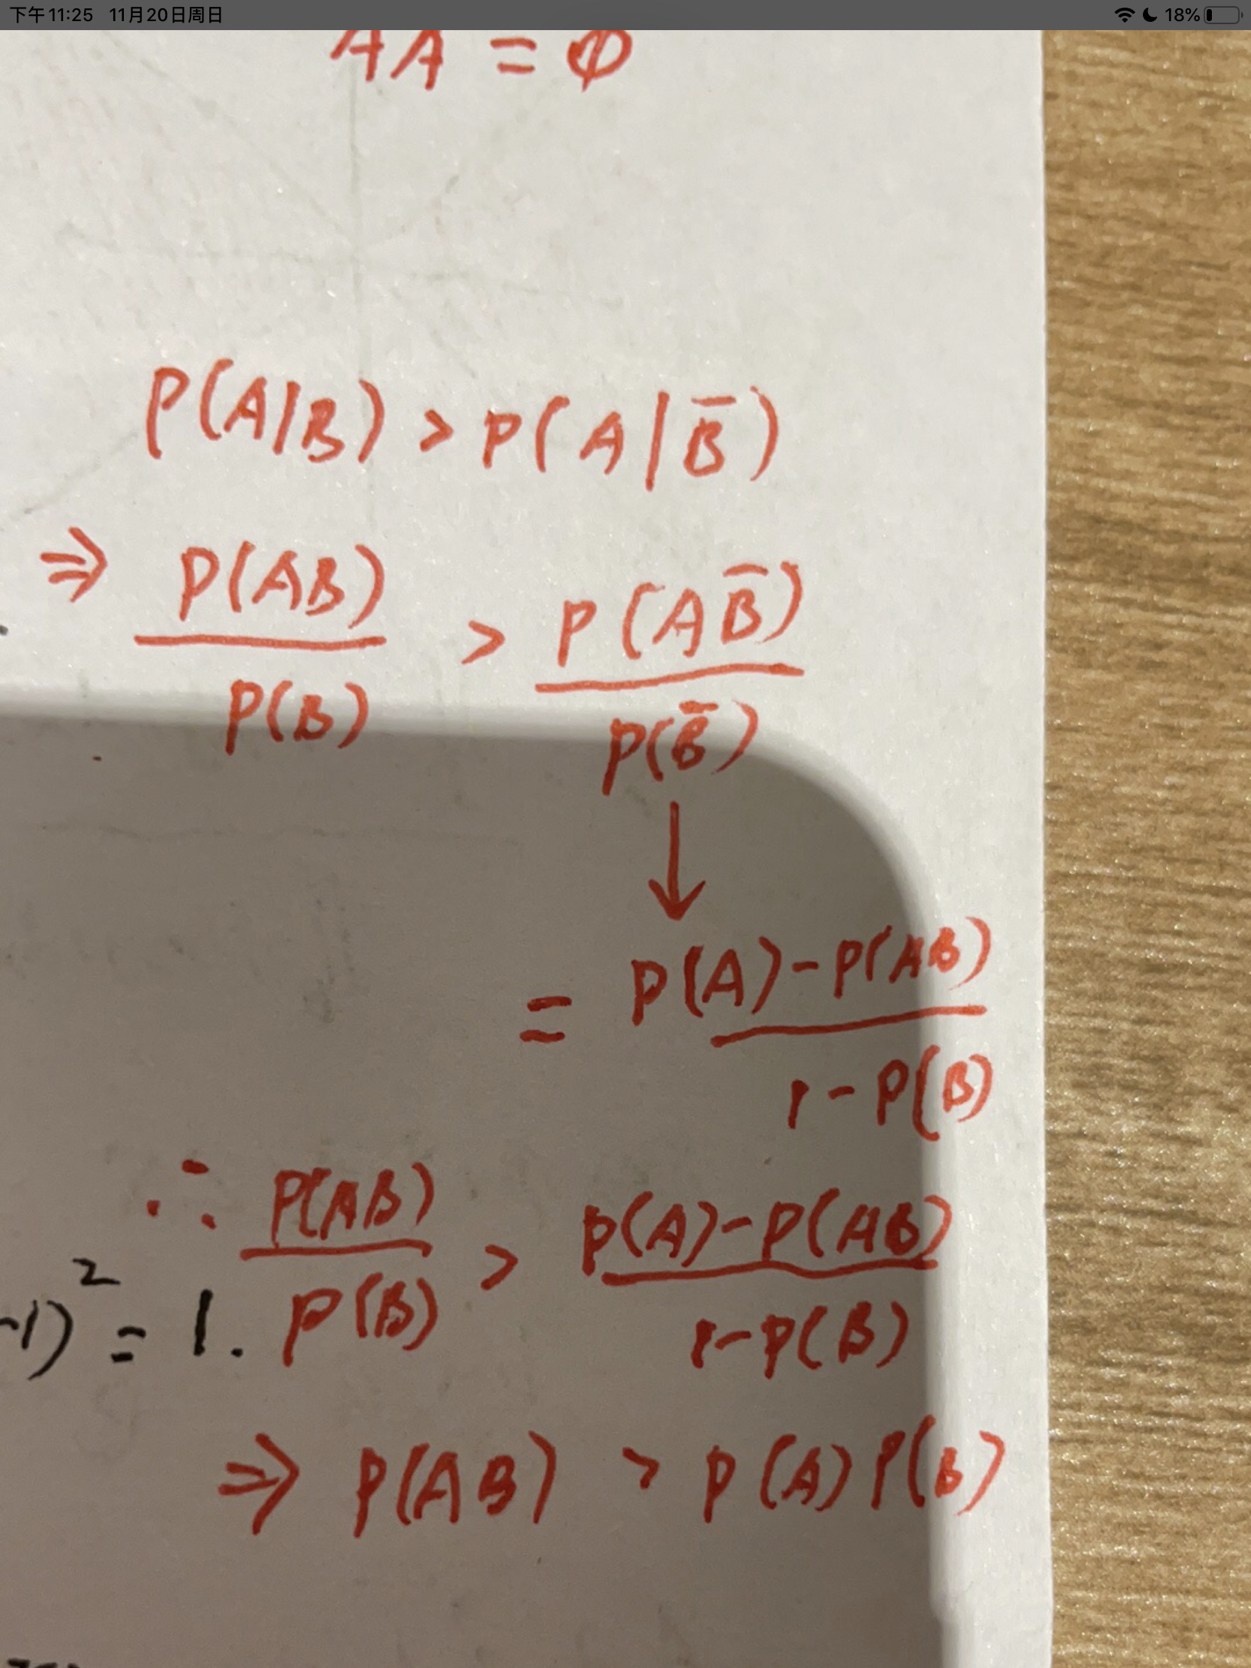 下午11:25 11月20日周日 18%
AA = Φ
P(A|B) > P(A|B̅)
⇒ P(AB)/P(B) > P(AB̅)/P(B̅)
↓
= P(A)-P(AB)/1-P(B)
∴ P(AB)/P(B) > P(A)-P(AB)/1-P(B)
-1)² = 1.
⇒ P(AB) > P(A)P(B)